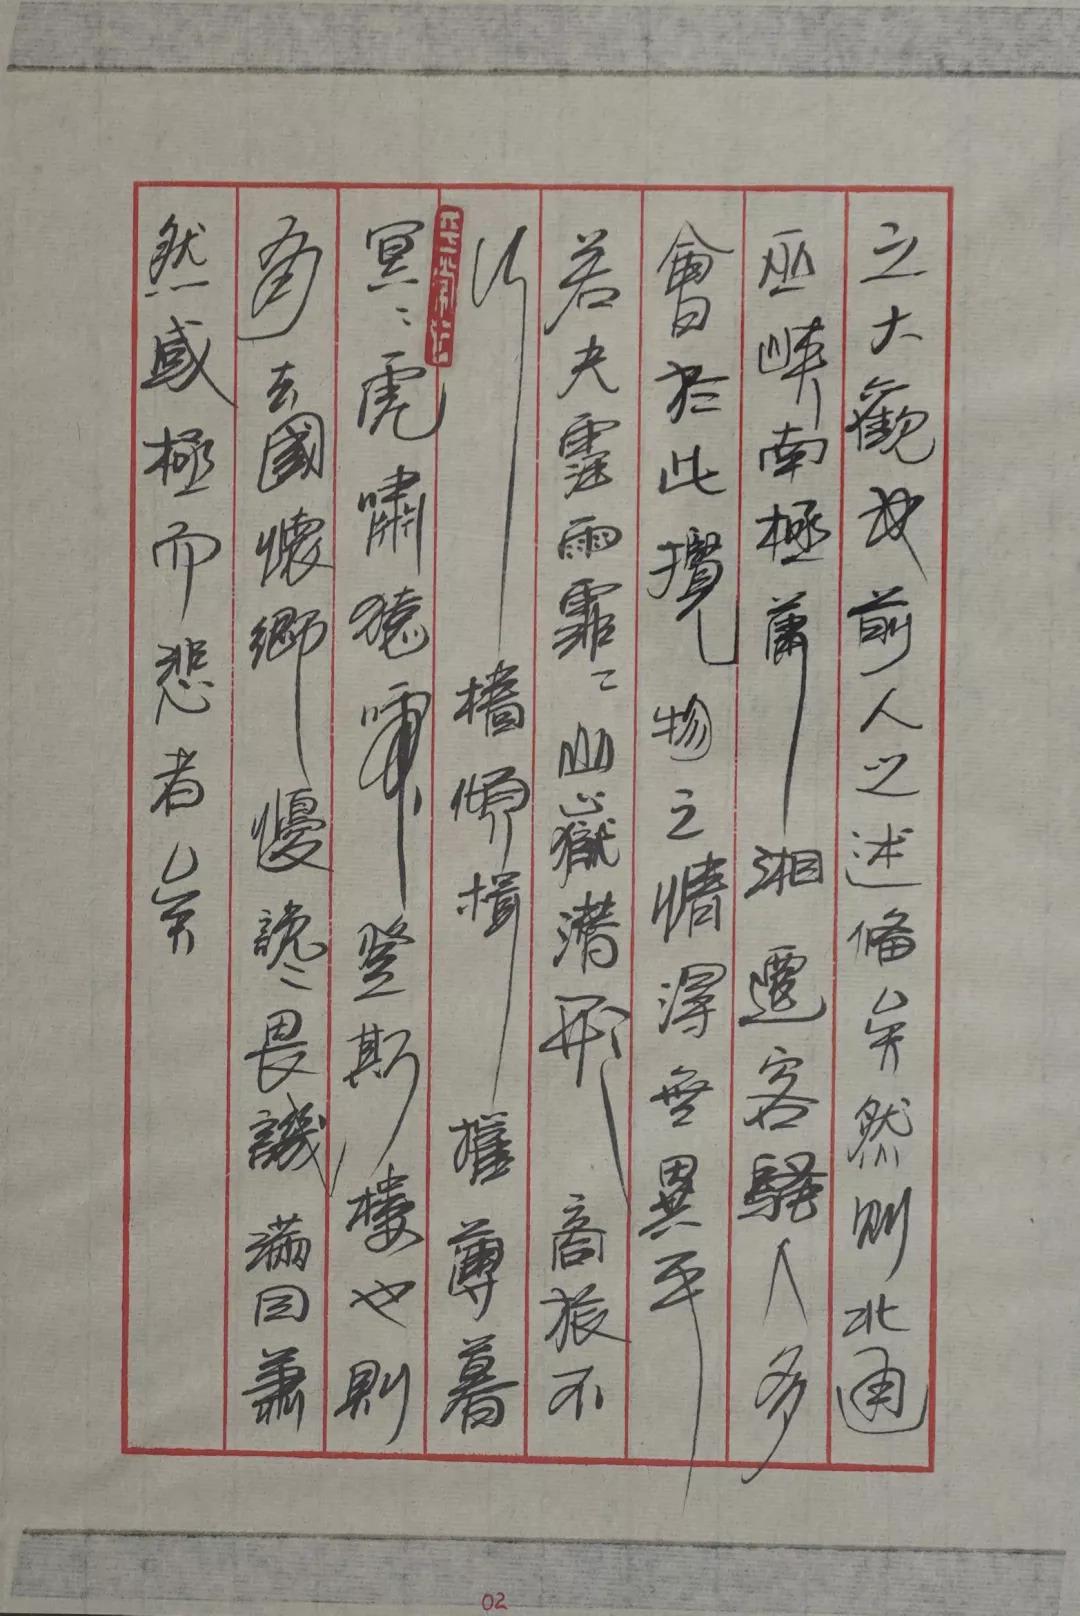 之大觀也前人之述備矣然則北通
巫峽南極蕭湘遷客騷人多
會於此攬物之情得無異乎
若夫霪雨霏〻山嶽潛形商旅不
行檣傾楫摧薄暮
冥〻虎嘯猿啼登斯樓也則
有去國懷鄉憂讒〻畏譏滿目蕭
然感極而悲者矣
02